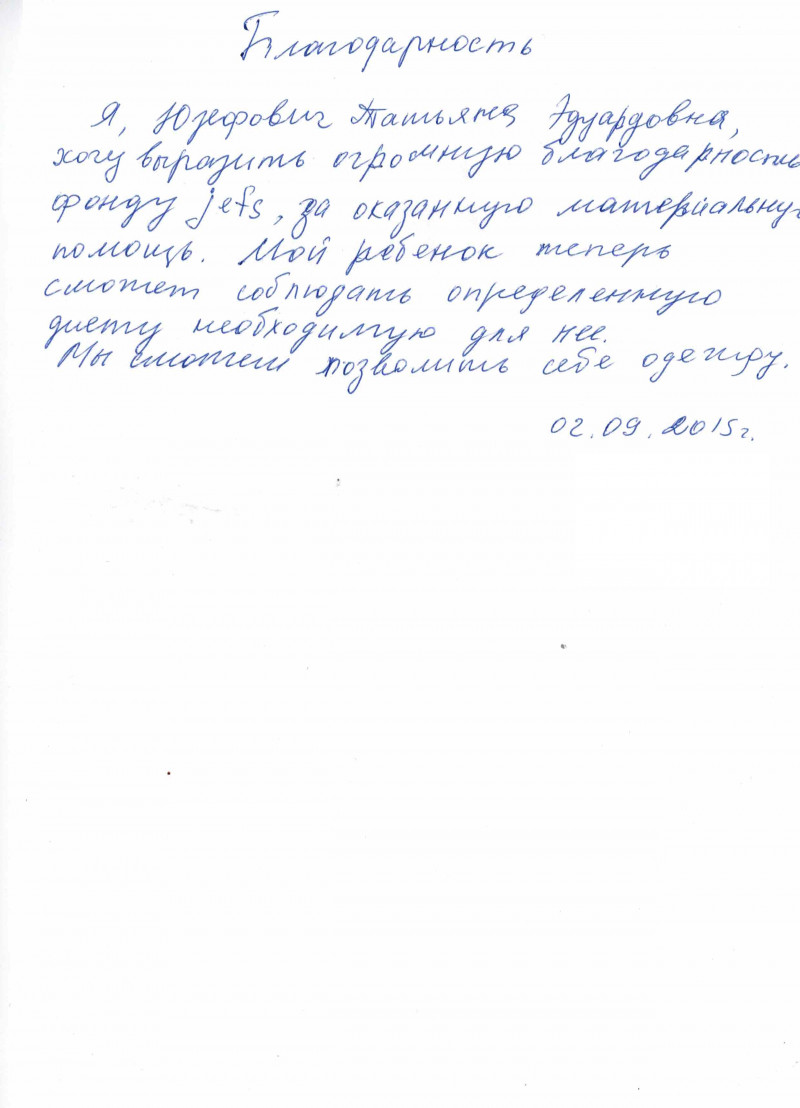 Благодарность
Я, Юзефович Татьяна Эдуардовна,
хочу выразить огромную благодарность
фонду jefs, за оказанную материальную
помощь. Мой ребенок теперь
сможет соблюдать определенную
диету необходимую для нее.
Мы сможем позволить себе одежду.
02.09.2015г.